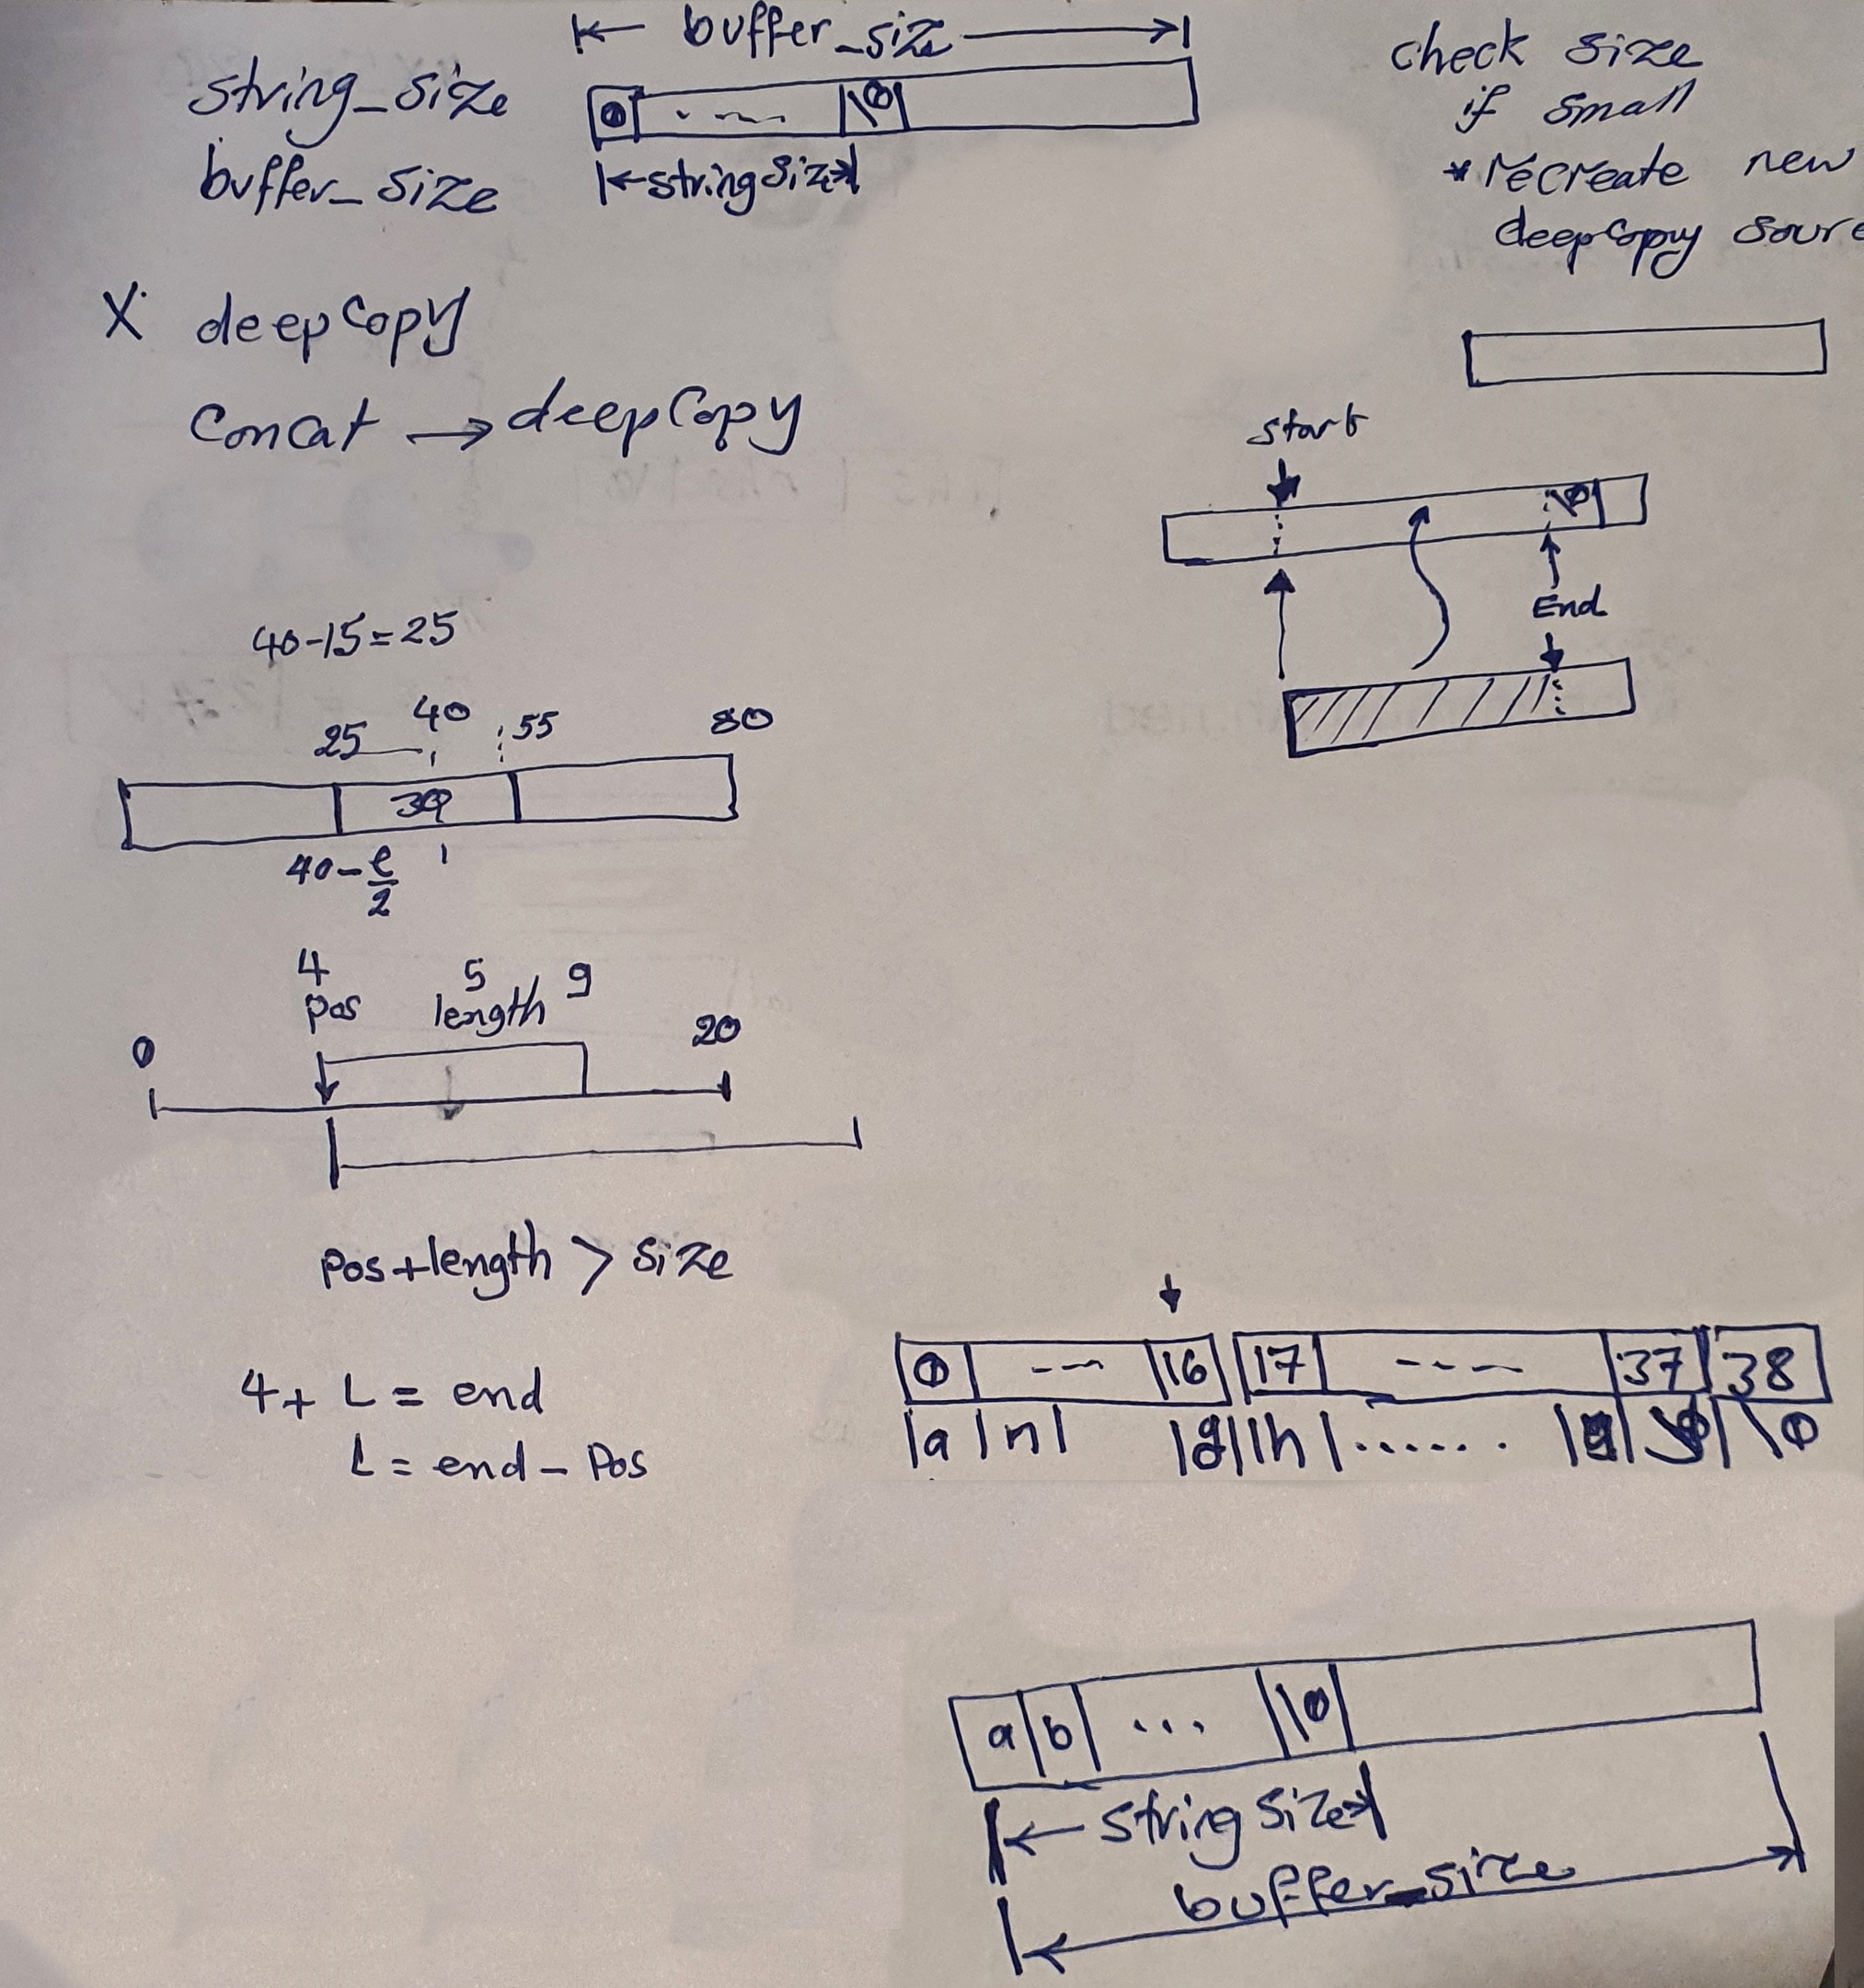 buffer_size
string_size
0 ---- \0
buffer_size
string size
check size
if small
* recreate new
deepCopy sour
X deepCopy
Concat → deepCopy
start
\0
End
40-15=25
25 40 55 80
30
40-ℓ/2
4 5 9
pos length
0 20
pos+length > size
4+ L = end
L = end - Pos
0 --- 16 17 ---- 37 38
a n g h ...... \0
a b ... \0
string size
buffer_size